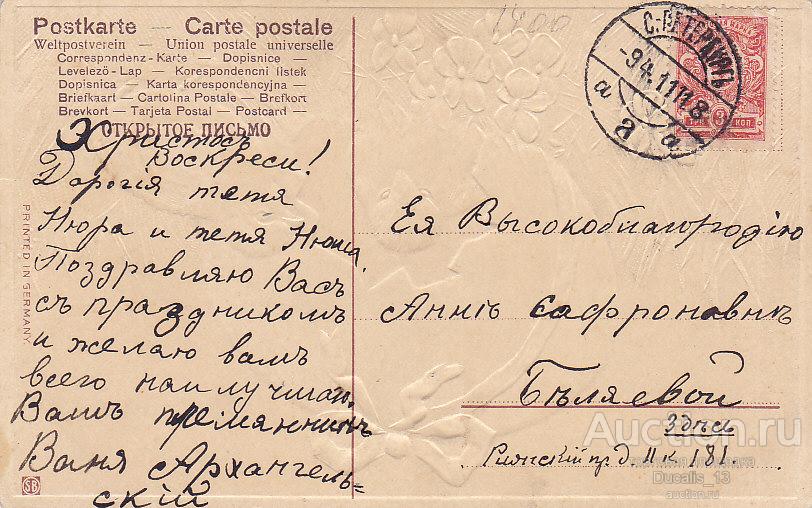 1400
Postkarte — Carte postale
Weltpostverein — Union postale universelle
Correspondenz-Karte — Dopisnice —
Levelező-Lap — Korespondencni listek
Dopisnica — Karta korespondencyjna —
Briefkaart — Cartolina Postale — Brefkort
Brevkort — Tarjeta Postal — Postcard —
ОТКРЫТОЕ ПИСЬМО
Христосъ
Воскресъ!
Дорогія тетя
Нюра и тетя Нюша.
Поздравляю Васъ
съ праздникомъ
и желаю вамъ
всего наилучшаго.
Вашъ племянникъ
Ваня Архангель-
скій
PRINTED IN GERMANY
SB
С.-ПЕТЕРБУРГЪ
-9 4.11 11 8
а а а
3 КОП.
Ея Высокоблагородію
Аннѣ Сафроновнѣ
Бѣляевой
Здѣсь
пр д. кв 181.
Auction.ru
Ducalis_13
auction.ru